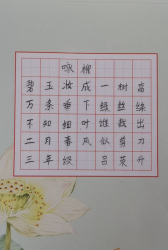 咏柳
碧玉妆成一树高
万条垂下绿丝绦
不知细叶谁裁出
二月春风似剪刀
三年级 吕